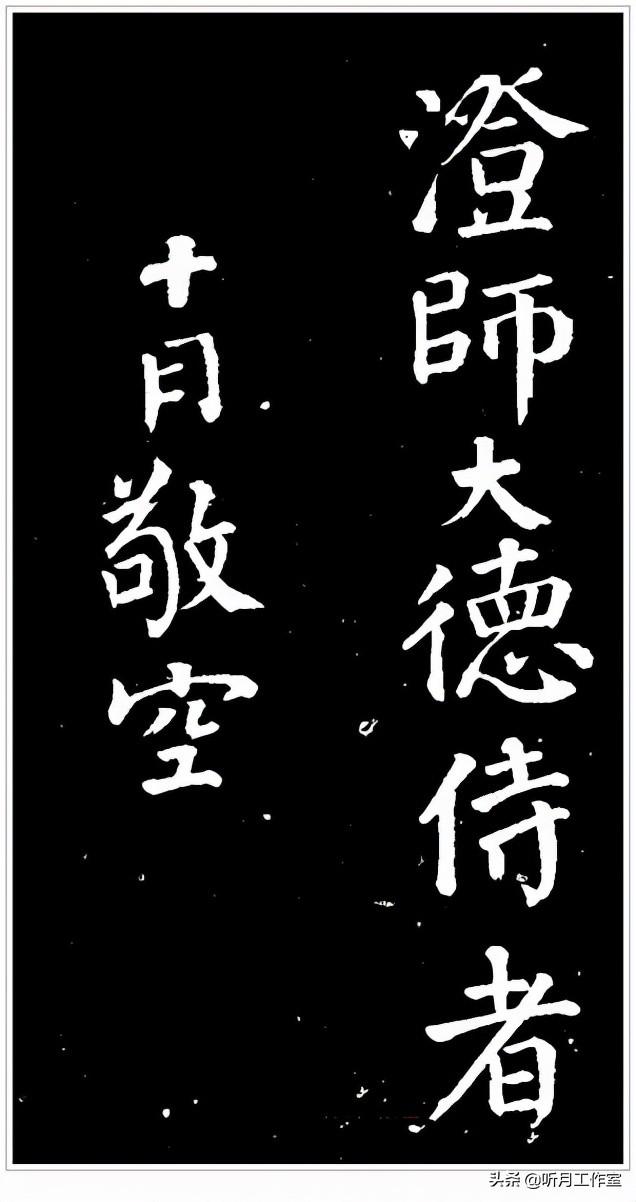 澄師大德侍者
十月敬空
头条 @听月工作室